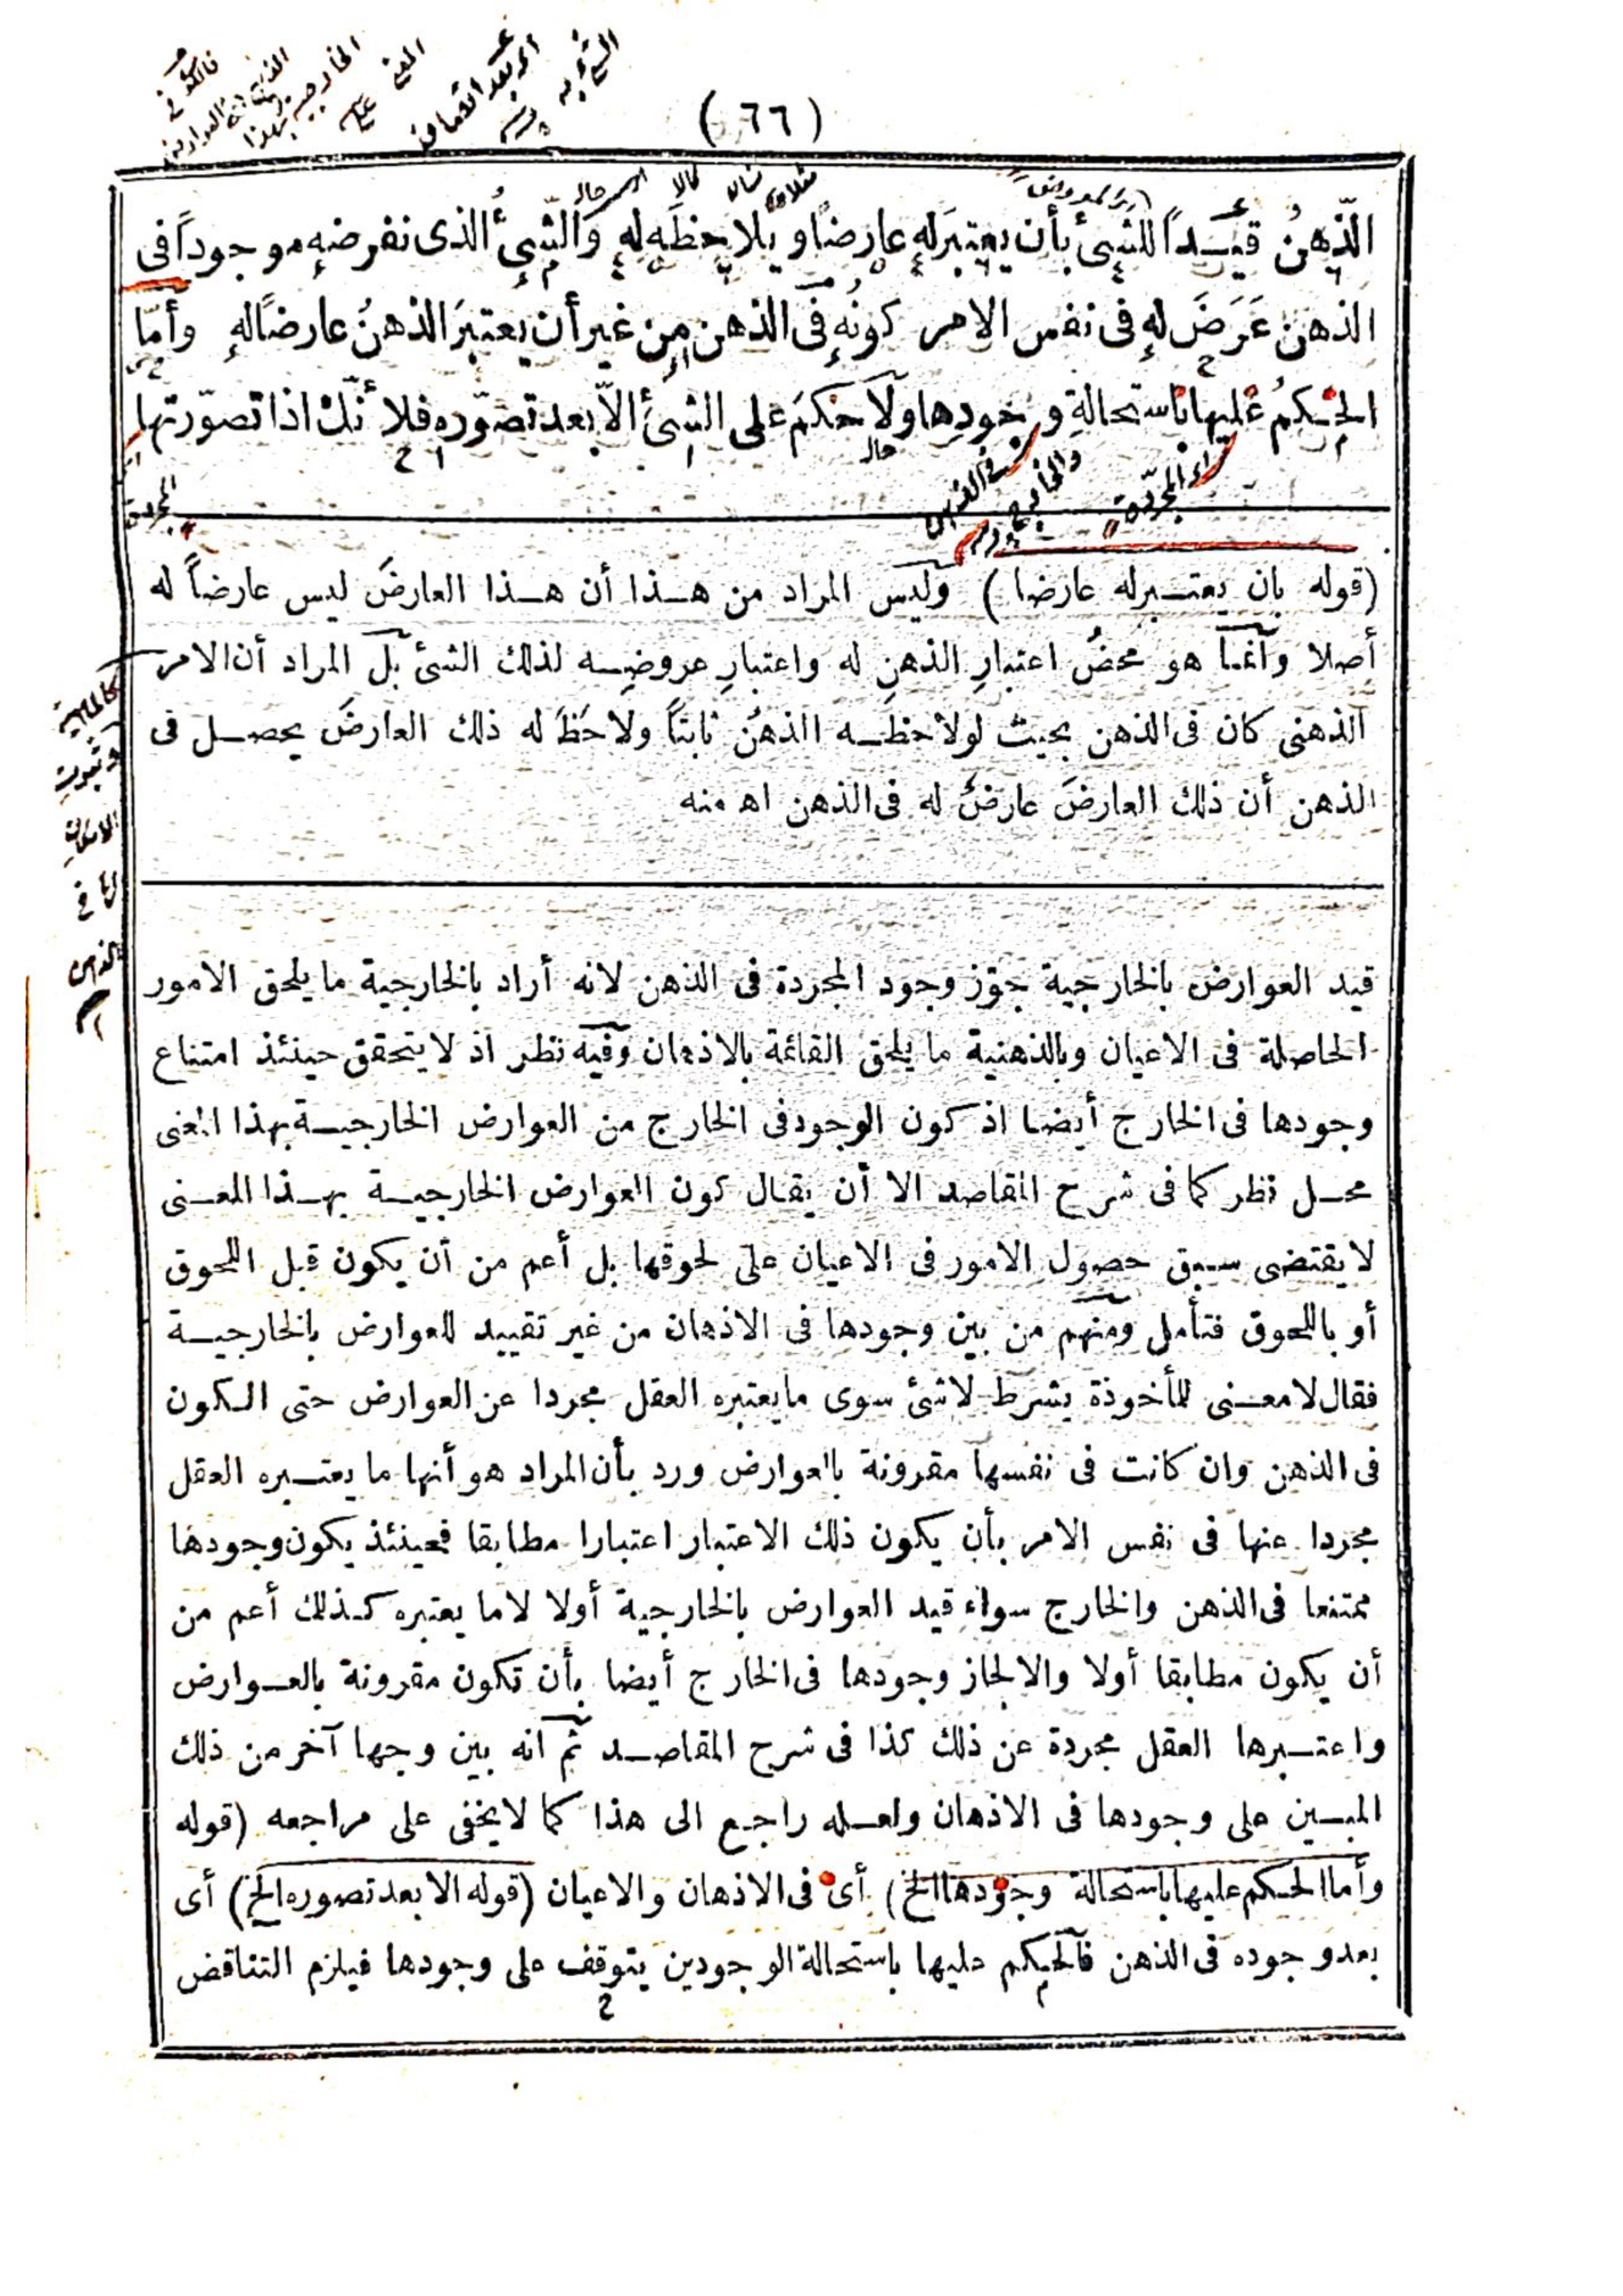 (٦٦)
الذّهنُ قيـداً للشئ بأن يعتبرَ لهِ عارضاً و يلاحظَه لهِ وَالشئُ الذى نفرضهِ موجوداً فى
الذهن عَرَضَ لهِ فى نفس الامر كونُهِ فى الذهن مِن غير أن يعتبرَ الذهنُ عارضاً لهِ وأمّا
الحـكمُ عليها باستحالةِ وجودِها ولا حكمَ على الشئ الاّ بعد تصوّره فلا نّك اذا تصوّرتها
المجردة
(قوله بان يعتـبرله عارضا) وليس المراد من هـذا أن هـذا العارضَ ليس عارضاً له
أصلا وانما هو محضُ اعتبارِ الذهنِ له واعتبارِ عروضِـه لذلك الشئ بل المراد أن الامر
الذهنى كان فى الذهن بحيث لو لاحظـه الذهنُ ثابتاً ولاحَظَ له ذلك العارضَ يحصـل فى
الذهن أن ذلك العارضَ عارضٌ له فى الذهن اه منه
كالماهية
الذهن
قيد العوارض بالخارجية جوّز وجود المجردة فى الذهن لانه أراد بالخارجية ما يلحق الامور
الحاصلة فى الاعيان وبالذهنية ما يلحق القائمة بالاذهان وفيه نظر اذ لا يتحقق حينئذ امتناع
وجودها فى الخارج أيضا اذ كون الوجود فى الخارج من العوارض الخارجيـة بهذا المعنى
محـل نظر كما فى شرح المقاصد الا أن يقال كون العوارض الخارجيـة بهـذا المعـنى
لا يقتضى سبق حصول الامور فى الاعيان على لحوقها بل أعم من أن يكون قبل اللحوق
أو باللحوق فتأمل ومنهم من بين وجودها فى الاذهان من غير تقييد للعوارض بالخارجيـة
فقال لا معـنى للمأخوذة بشرط لا شئ سوى ما يعتبره العقل مجردا عن العوارض حتى الكون
فى الذهن وان كانت فى نفسها مقرونة بالعوارض ورد بأن المراد هو أنها ما يعتـبره العقل
مجردا عنها فى نفس الامر بأن يكون ذلك الاعتبار اعتبارا مطابقا فحينئذ يكون وجودها
ممتنعا فى الذهن والخارج سواء قيد العوارض بالخارجية أولا لا ما يعتبره كـذلك أعم من
أن يكون مطابقا أولا والا لجاز وجودها فى الخارج أيضا بأن تكون مقرونة بالعـوارض
واعتـبرها العقل مجردة عن ذلك كذا فى شرح المقاصـد ثم انه بين وجها آخر من ذلك
المبـين على وجودها فى الاذهان ولعـله راجع الى هذا كما لا يخفى على مراجعه (قوله
وأما الحـكم عليها باستحالة وجودها الخ) أى فى الاذهان والاعيان (قوله الا بعد تصوره الخ) أى
بعد وجوده فى الذهن فالحكم عليها باستحالة الوجودين يتوقف على وجودها فيلزم التناقض